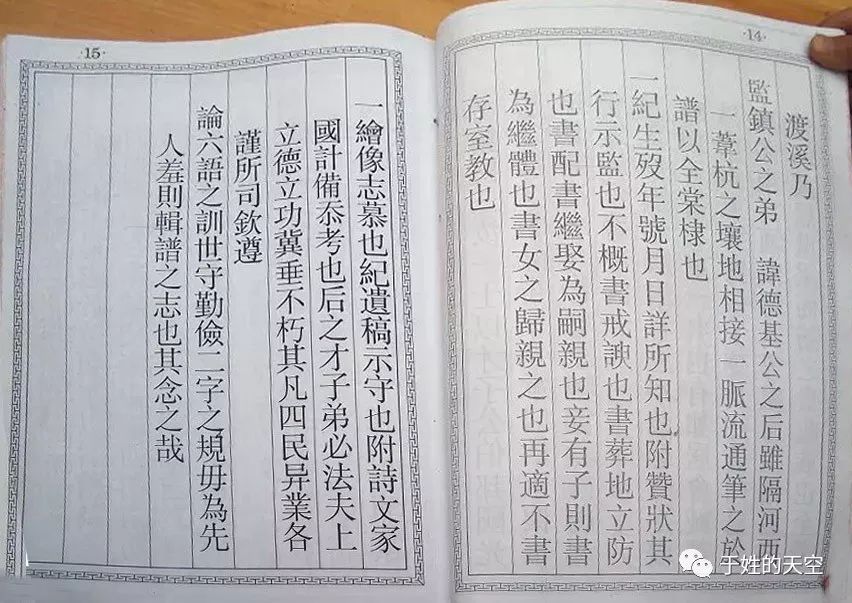 ·14·
渡溪乃
監鎮公之弟 諱德基公之后雖隔河西
一葦杭之壤地相接一脈流通筆之於
譜以全棠棣也
一紀生殁年號月日詳所知也附贊狀其
行示監也不概書戒諛也書葬地立防
也書配書繼娶為嗣親也妾有子則書
為繼體也書女之歸親之也再適不書
存室教也
·15·
一繪像志慕也紀遺稿示守也附詩文家
國計備忝考也后之才子弟必法夫上
立德立功冀垂不朽其凡四民异業各
謹所司欽遵
諭六語之訓世守勤儉二字之規毋為先
人羞則輯譜之志也其念之哉
于姓的天空